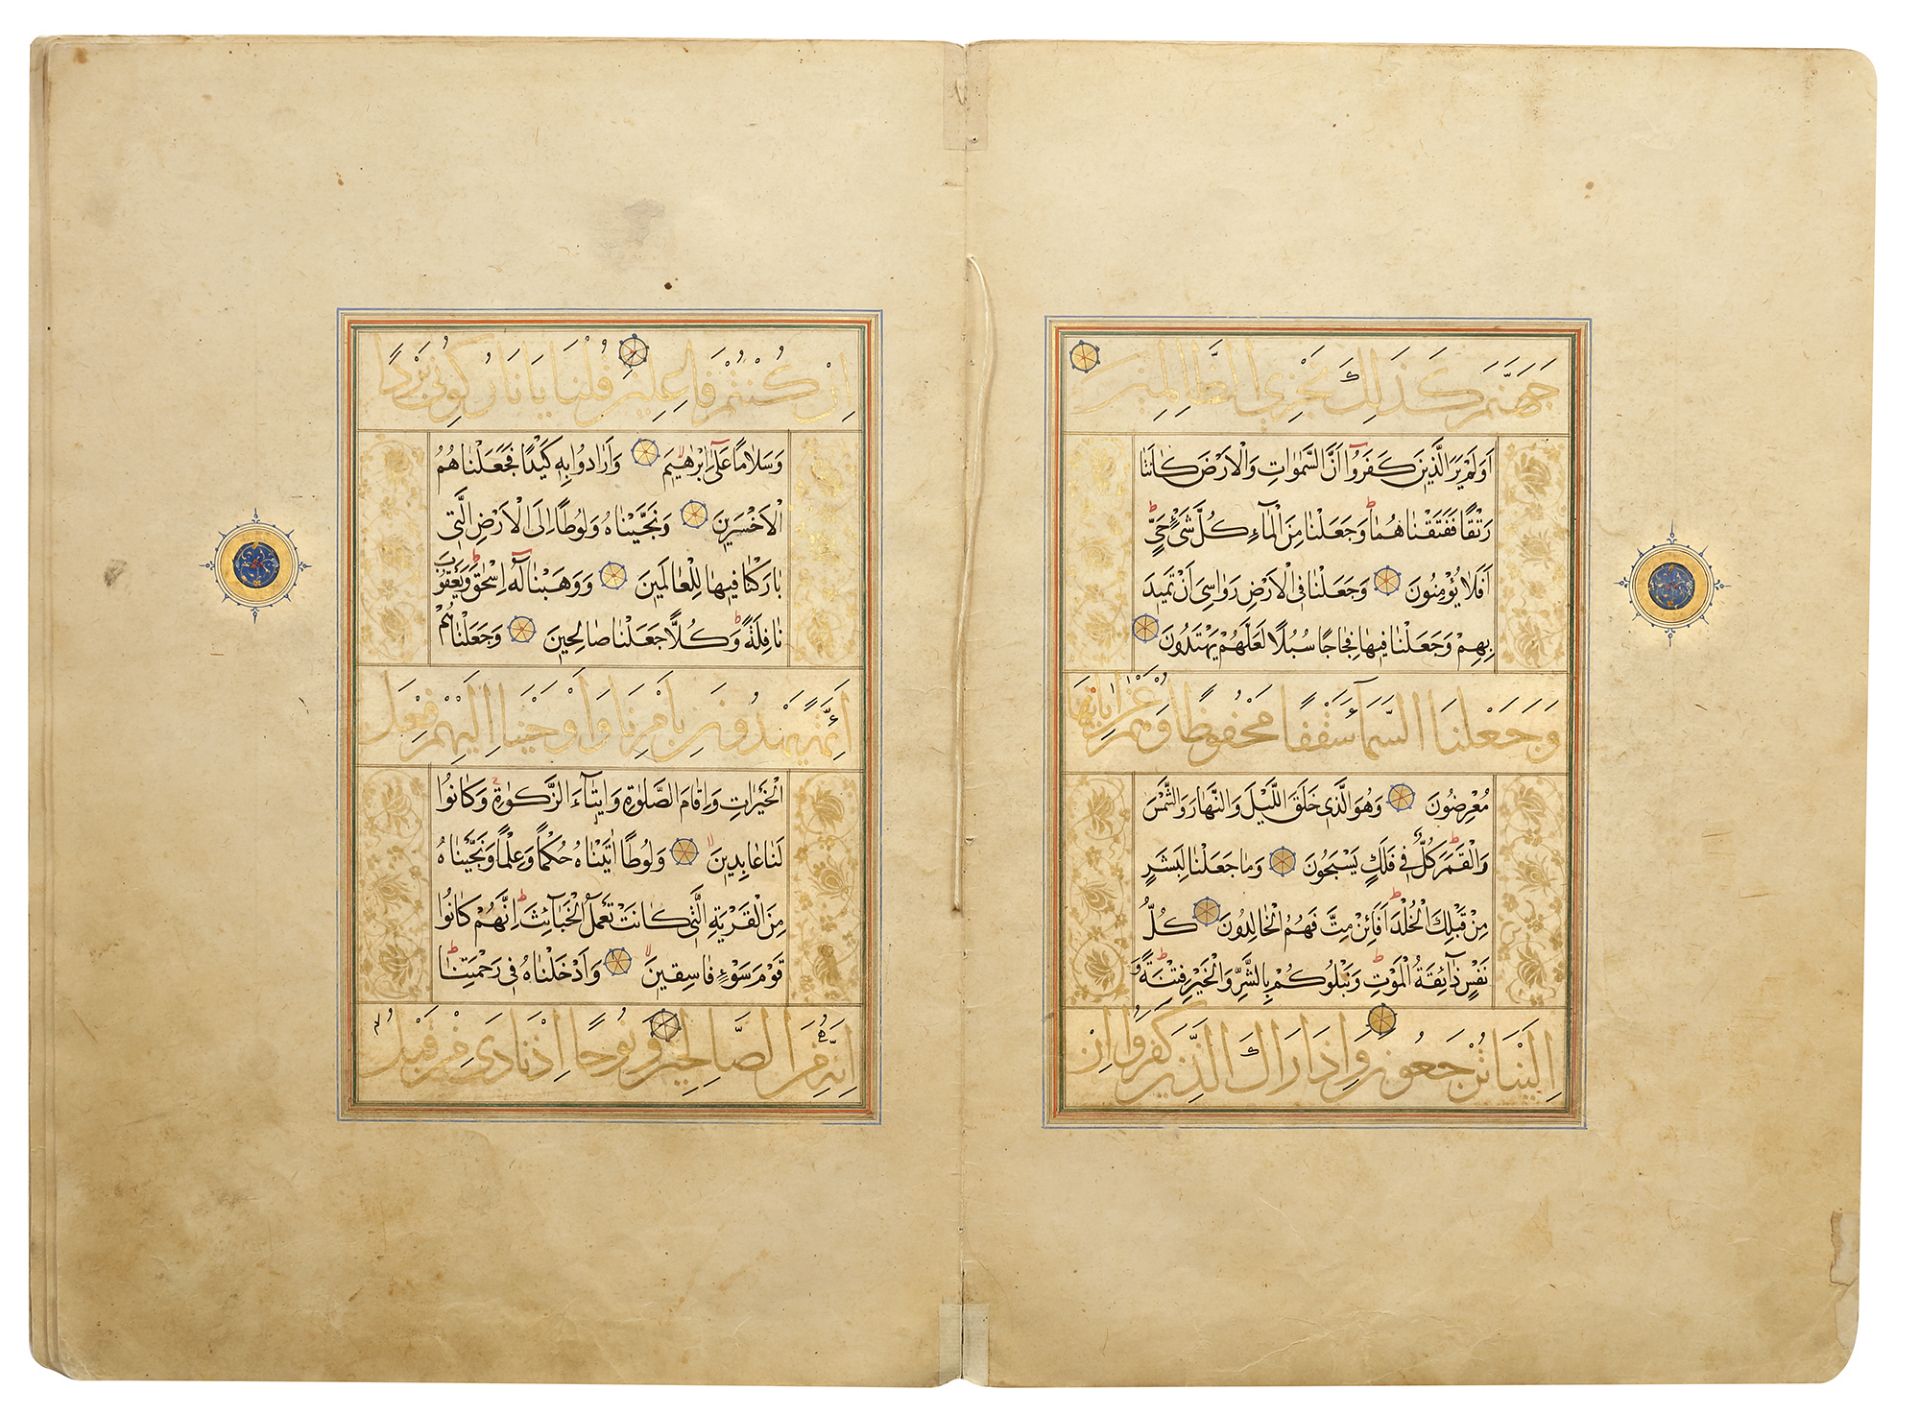 جَهَنَّمَ كَذٰلِكَ نَجْزِي الظَّالِمِينَ
اَوَلَمْ يَرَ الَّذِينَ كَفَرُوٓا اَنَّ السَّمٰوَاتِ وَالْاَرْضَ كَانَتَا
رَتْقًا فَفَتَقْنَاهُمَا ط وَجَعَلْنَا مِنَ الْمَآءِ كُلَّ شَيْءٍ حَيٍّ ط
اَفَلَا يُؤْمِنُونَ وَجَعَلْنَا فِي الْاَرْضِ رَوَاسِيَ اَنْ تَمِيدَ
بِهِمْ وَجَعَلْنَا فِيهَا فِجَاجًا سُبُلًا لَعَلَّهُمْ يَهْتَدُونَ
وَجَعَلْنَا السَّمَآءَ سَقْفًا مَحْفُوظًا وَهُمْ عَنْ اٰيَاتِهَا
مُعْرِضُونَ وَهُوَ الَّذِي خَلَقَ اللَّيْلَ وَالنَّهَارَ وَالشَّمْسَ
وَالْقَمَرَ ط كُلٌّ فِي فَلَكٍ يَسْبَحُونَ وَمَا جَعَلْنَا لِبَشَرٍ
مِنْ قَبْلِكَ الْخُلْدَ ط اَفَاِئِنْ مِتَّ فَهُمُ الْخَالِدُونَ كُلُّ
نَفْسٍ ذَآئِقَةُ الْمَوْتِ ط وَنَبْلُوكُمْ بِالشَّرِّ وَالْخَيْرِ فِتْنَةً ط وَ
اِلَيْنَا تُرْجَعُونَ وَاِذَا رَاٰكَ الَّذِينَ كَفَرُوٓا اِنْ
اِنْ كُنْتُمْ فَاعِلِينَ قُلْنَا يَا نَارُ كُونِي بَرْدًا
وَسَلَامًا عَلٰٓى اِبْرٰهِيمَ لا وَاَرَادُوا بِهِ كَيْدًا فَجَعَلْنَاهُمُ
الْاَخْسَرِينَ وَنَجَّيْنَاهُ وَلُوطًا اِلَى الْاَرْضِ الَّتِي
بَارَكْنَا فِيهَا لِلْعَالَمِينَ وَوَهَبْنَا لَهُٓ اِسْحٰقَ ط وَيَعْقُوبَ
نَافِلَةً ط وَكُلًّا جَعَلْنَا صَالِحِينَ وَجَعَلْنَاهُمْ
اَئِمَّةً يَهْدُونَ بِاَمْرِنَا وَاَوْحَيْنَا اِلَيْهِمْ فِعْلَ
الْخَيْرَاتِ وَاِقَامَ الصَّلٰوةِ وَاِيتَآءَ الزَّكٰوةِ ج وَكَانُوا
لَنَا عَابِدِينَ لا وَلُوطًا اٰتَيْنَاهُ حُكْمًا وَعِلْمًا وَنَجَّيْنَاهُ
مِنَ الْقَرْيَةِ الَّتِي كَانَتْ تَعْمَلُ الْخَبَآئِثَ ط اِنَّهُمْ كَانُوا
قَوْمَ سَوْءٍ فَاسِقِينَ لا وَاَدْخَلْنَاهُ فِي رَحْمَتِنَا ط
اِنَّهُ مِنَ الصَّالِحِينَ وَنُوحًا اِذْ نَادٰى مِنْ قَبْلُ